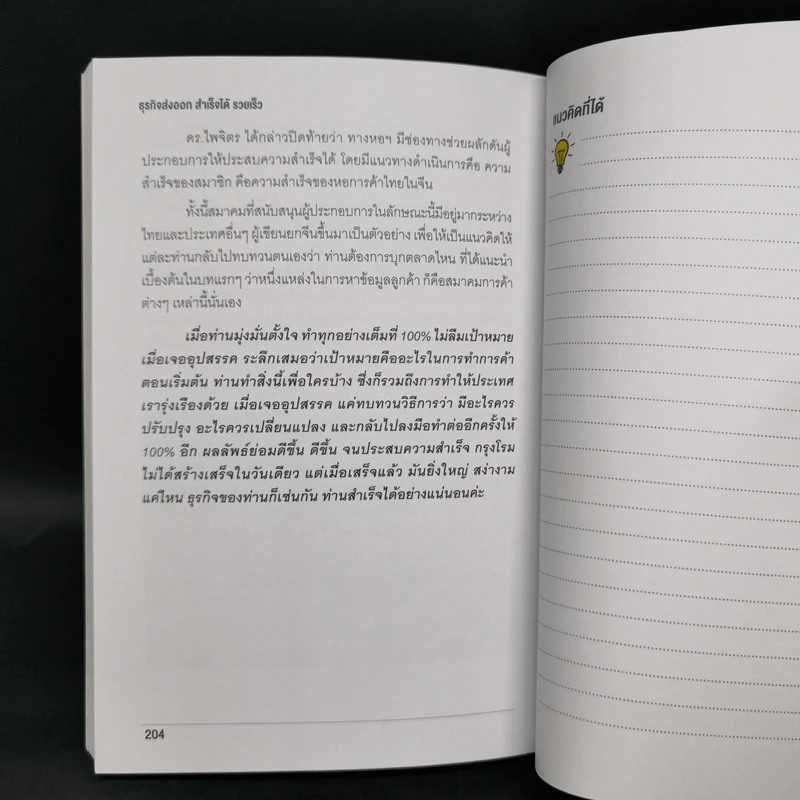 ธุรกิจส่งออก สำเร็จได้ รวยเร็ว
ดร.ไพจิตร ได้กล่าวปิดท้ายว่า ทางหอฯ มีช่องทางช่วยผลักดันผู้
ประกอบการให้ประสบความสำเร็จได้ โดยมีแนวทางดำเนินการคือ ความ
สำเร็จของสมาชิก คือความสำเร็จของหอการค้าไทยในจีน
ทั้งนี้สมาคมที่สนับสนุนผู้ประกอบการในลักษณะนี้มีอยู่มากระหว่าง
ไทยและประเทศอื่นๆ ผู้เขียนยกจีนขึ้นมาเป็นตัวอย่าง เพื่อให้เป็นแนวคิดให้
แต่ละท่านกลับไปทบทวนตนเองว่า ท่านต้องการบุกตลาดไหน ที่ได้แนะนำ
เบื้องต้นในบทแรกๆ ว่าหนึ่งแหล่งในการหาข้อมูลลูกค้า ก็คือสมาคมการค้า
ต่างๆ เหล่านี้นั่นเอง
เมื่อท่านมุ่งมั่นตั้งใจ ทำทุกอย่างเต็มที่ 100% ไม่ลืมเป้าหมาย
เมื่อเจออุปสรรค ระลึกเสมอว่าเป้าหมายคืออะไรในการทำการค้า
ตอนเริ่มต้น ท่านทำสิ่งนี้เพื่อใครบ้าง ซึ่งก็รวมถึงการทำให้ประเทศ
เรารุ่งเรืองด้วย เมื่อเจออุปสรรค แค่ทบทวนวิธีการว่า มีอะไรควร
ปรับปรุง อะไรควรเปลี่ยนแปลง และกลับไปลงมือทำต่ออีกครั้งให้
100% อีก ผลลัพธ์ย่อมดีขึ้น ดีขึ้น จนประสบความสำเร็จ กรุงโรม
ไม่ได้สร้างเสร็จในวันเดียว แต่เมื่อเสร็จแล้ว มันยิ่งใหญ่ สง่างาม
แค่ไหน ธุรกิจของท่านก็เช่นกัน ท่านสำเร็จได้อย่างแน่นอนค่ะ
204
แนวคิดที่ได้